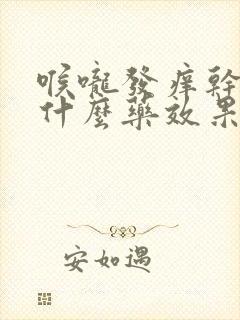 喉嚨發痒幹
什麼藥效果
安如遇